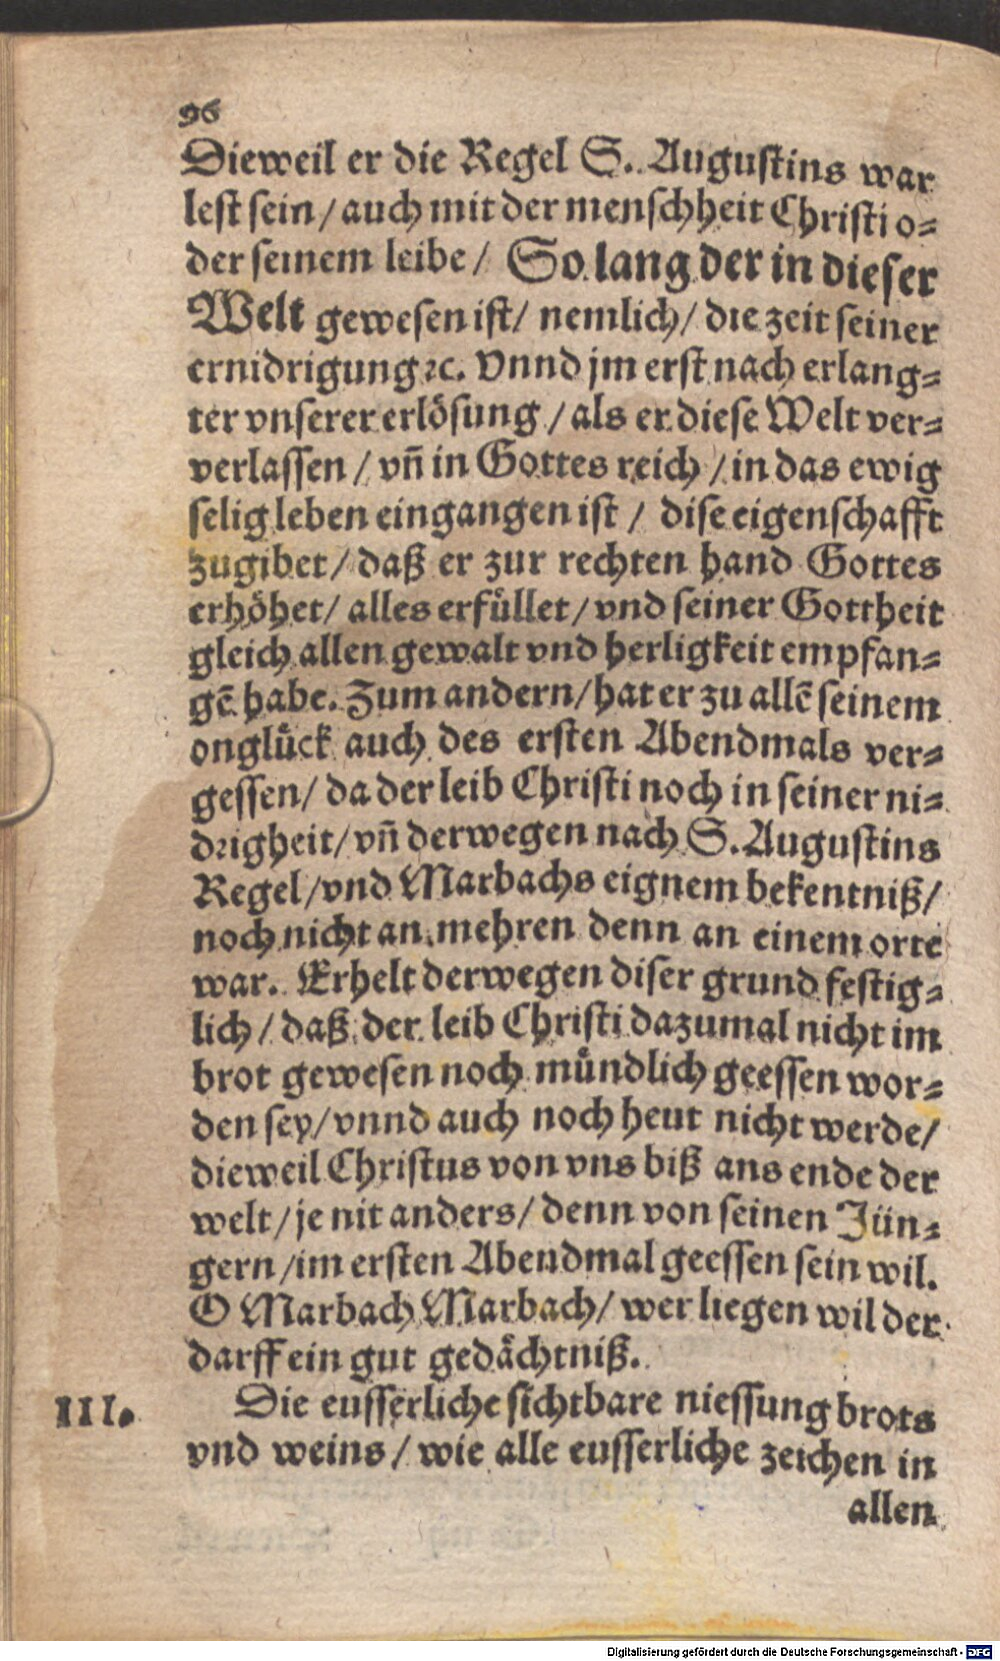 96
Dieweil er die Regel S. Augustins war
lest sein / auch mit der menschheit Christi o-
der seinem leibe / So lang der in dieser
Welt gewesen ist / nemlich / die zeit seiner
ernidrigung ꝛc. Vnnd jm erst nach erlang-
ter vnserer erlösung / als er diese Welt ver-
verlassen / vn̄ in Gottes reich / in das ewig
selig leben eingangen ist / dise eigenschafft
zugibet / daß er zur rechten hand Gottes
erhöhet / alles erfüllet / vnd seiner Gottheit
gleich allen gewalt vnd herligkeit empfan-
gē habe. Zum andern / hat er zu allē seinem
onglück auch des ersten Abendmals ver-
gessen / da der leib Christi noch in seiner ni-
drigheit / vn̄ derwegen nach S. Augustins
Regel / vnd Marbachs eignem bekentniß /
noch nicht an mehren denn an einem orte
war. Erhelt derwegen diser grund festig-
lich / daß der leib Christi dazumal nicht im
brot gewesen noch mündlich geessen wor-
den sey / vnnd auch noch heut nicht werde /
dieweil Christus von vns biß ans ende der
welt / je nit anders / denn von seinen Jün-
gern / im ersten Abendmal geessen sein wil.
O Marbach Marbach / wer liegen wil der
darff ein gut gedächtniß.
III. Die eusserliche sichtbare niessung brots
vnd weins / wie alle eusserliche zeichen in
allen
Digitalisierung gefördert durch die Deutsche Forschungsgemeinschaft - DFG